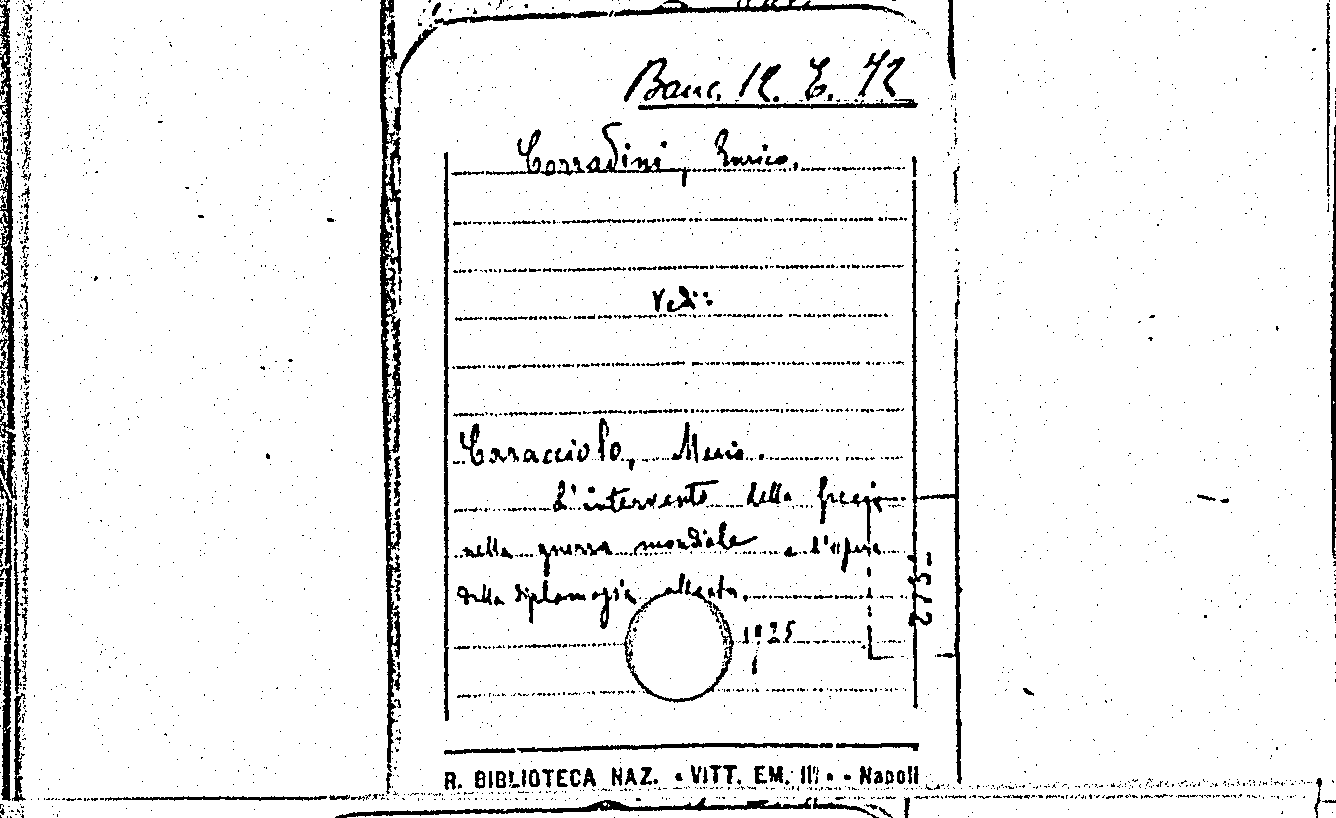 Banc. 12. E. 42
Corradini, Enrico.
Vedi:
Caracciolo, Mario.
L'intervento della Grecia
nella guerra mondiale e l'opera
della diplomazia alleata.
1925
R. BIBLIOTECA NAZ. « VITT. EM. III » - Napoli